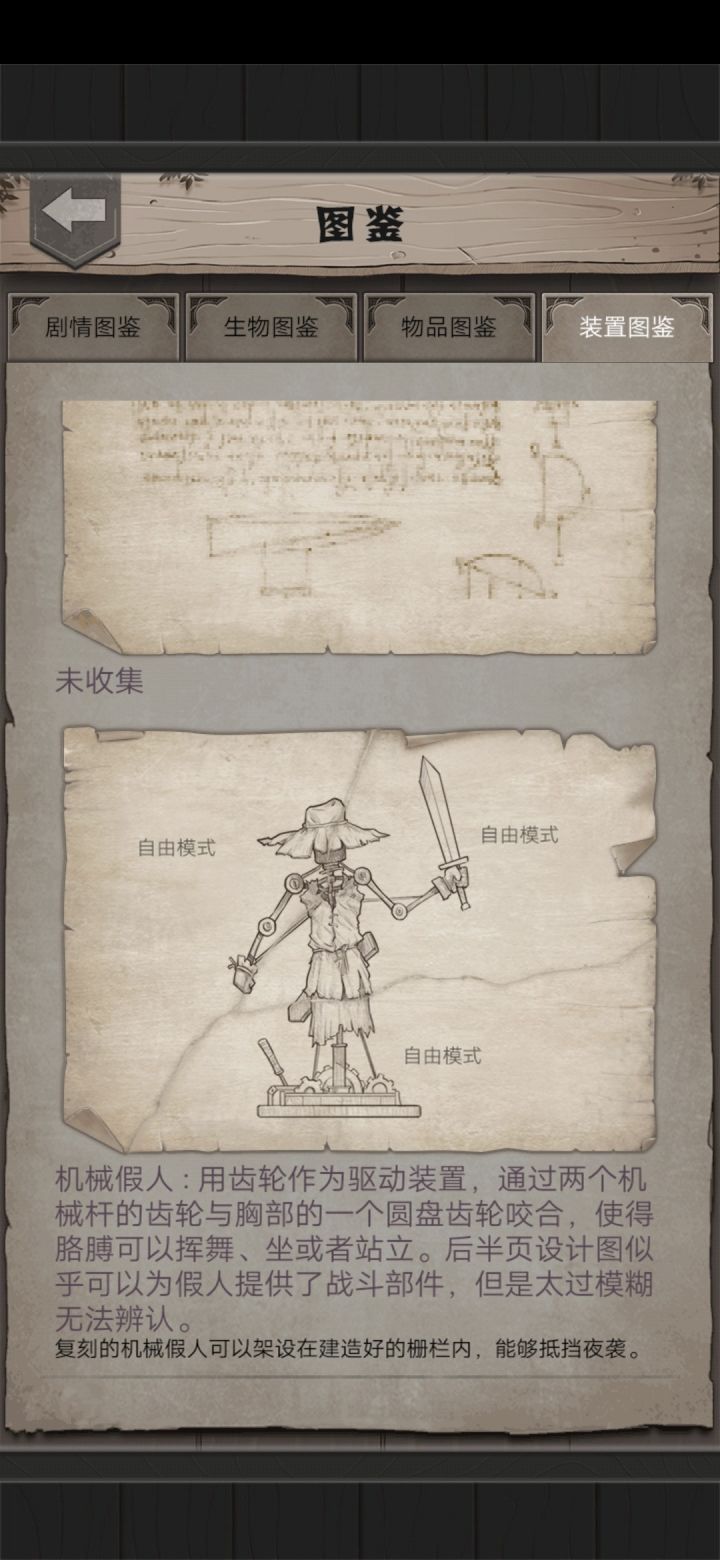 图鉴
剧情图鉴 生物图鉴 物品图鉴 装置图鉴
未收集
自由模式
自由模式
自由模式
机械假人：用齿轮作为驱动装置，通过两个机
械杆的齿轮与胸部的一个圆盘齿轮咬合，使得
胳膊可以挥舞、坐或者站立。后半页设计图似
乎可以为假人提供了战斗部件，但是太过模糊
无法辨认。
复刻的机械假人可以架设在建造好的栅栏内，能够抵挡夜袭。